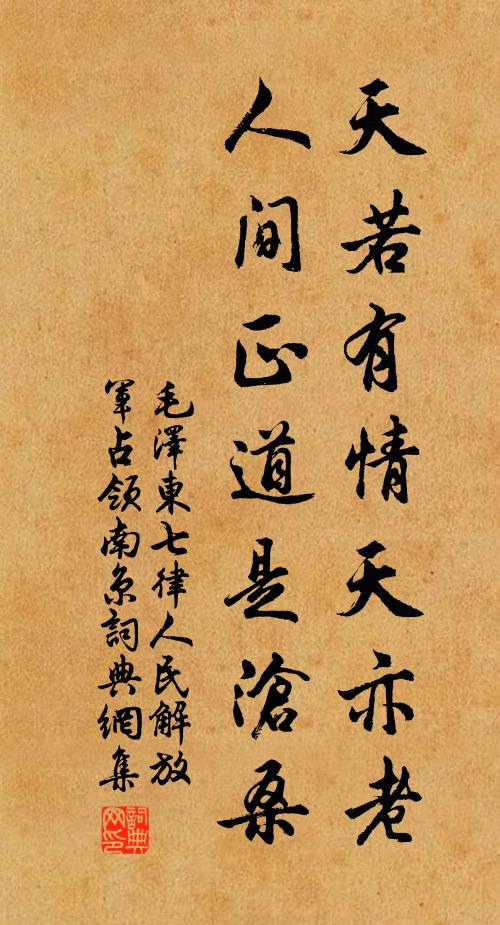 天若有情天亦老
人間正道是滄桑
毛澤東七律人民解放
軍占領南京詞典網集
詞典网印